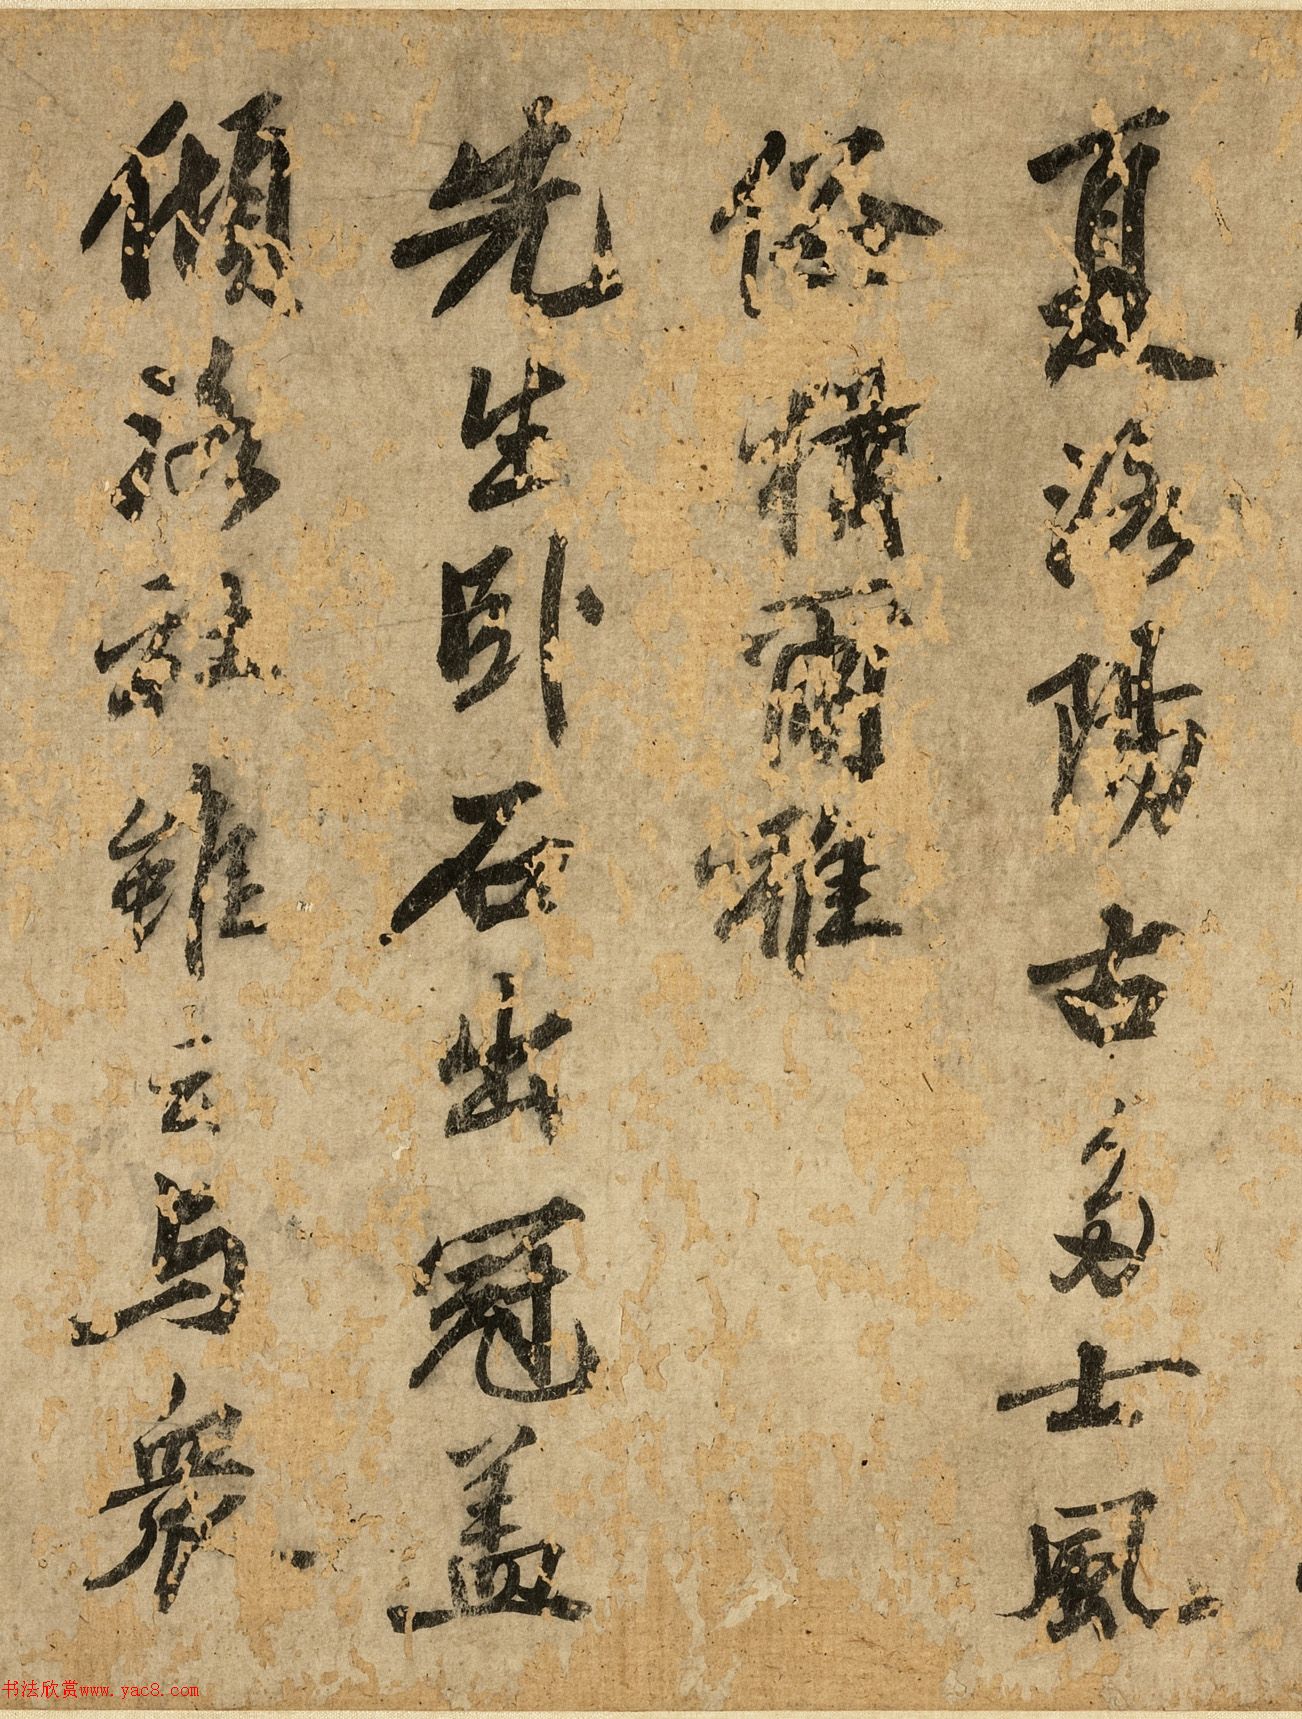 夏洛陽古多士風
俗猶爾雅
先生卧石出冠盖
傾洛社雖云与衆
书法欣赏www.yac8.com